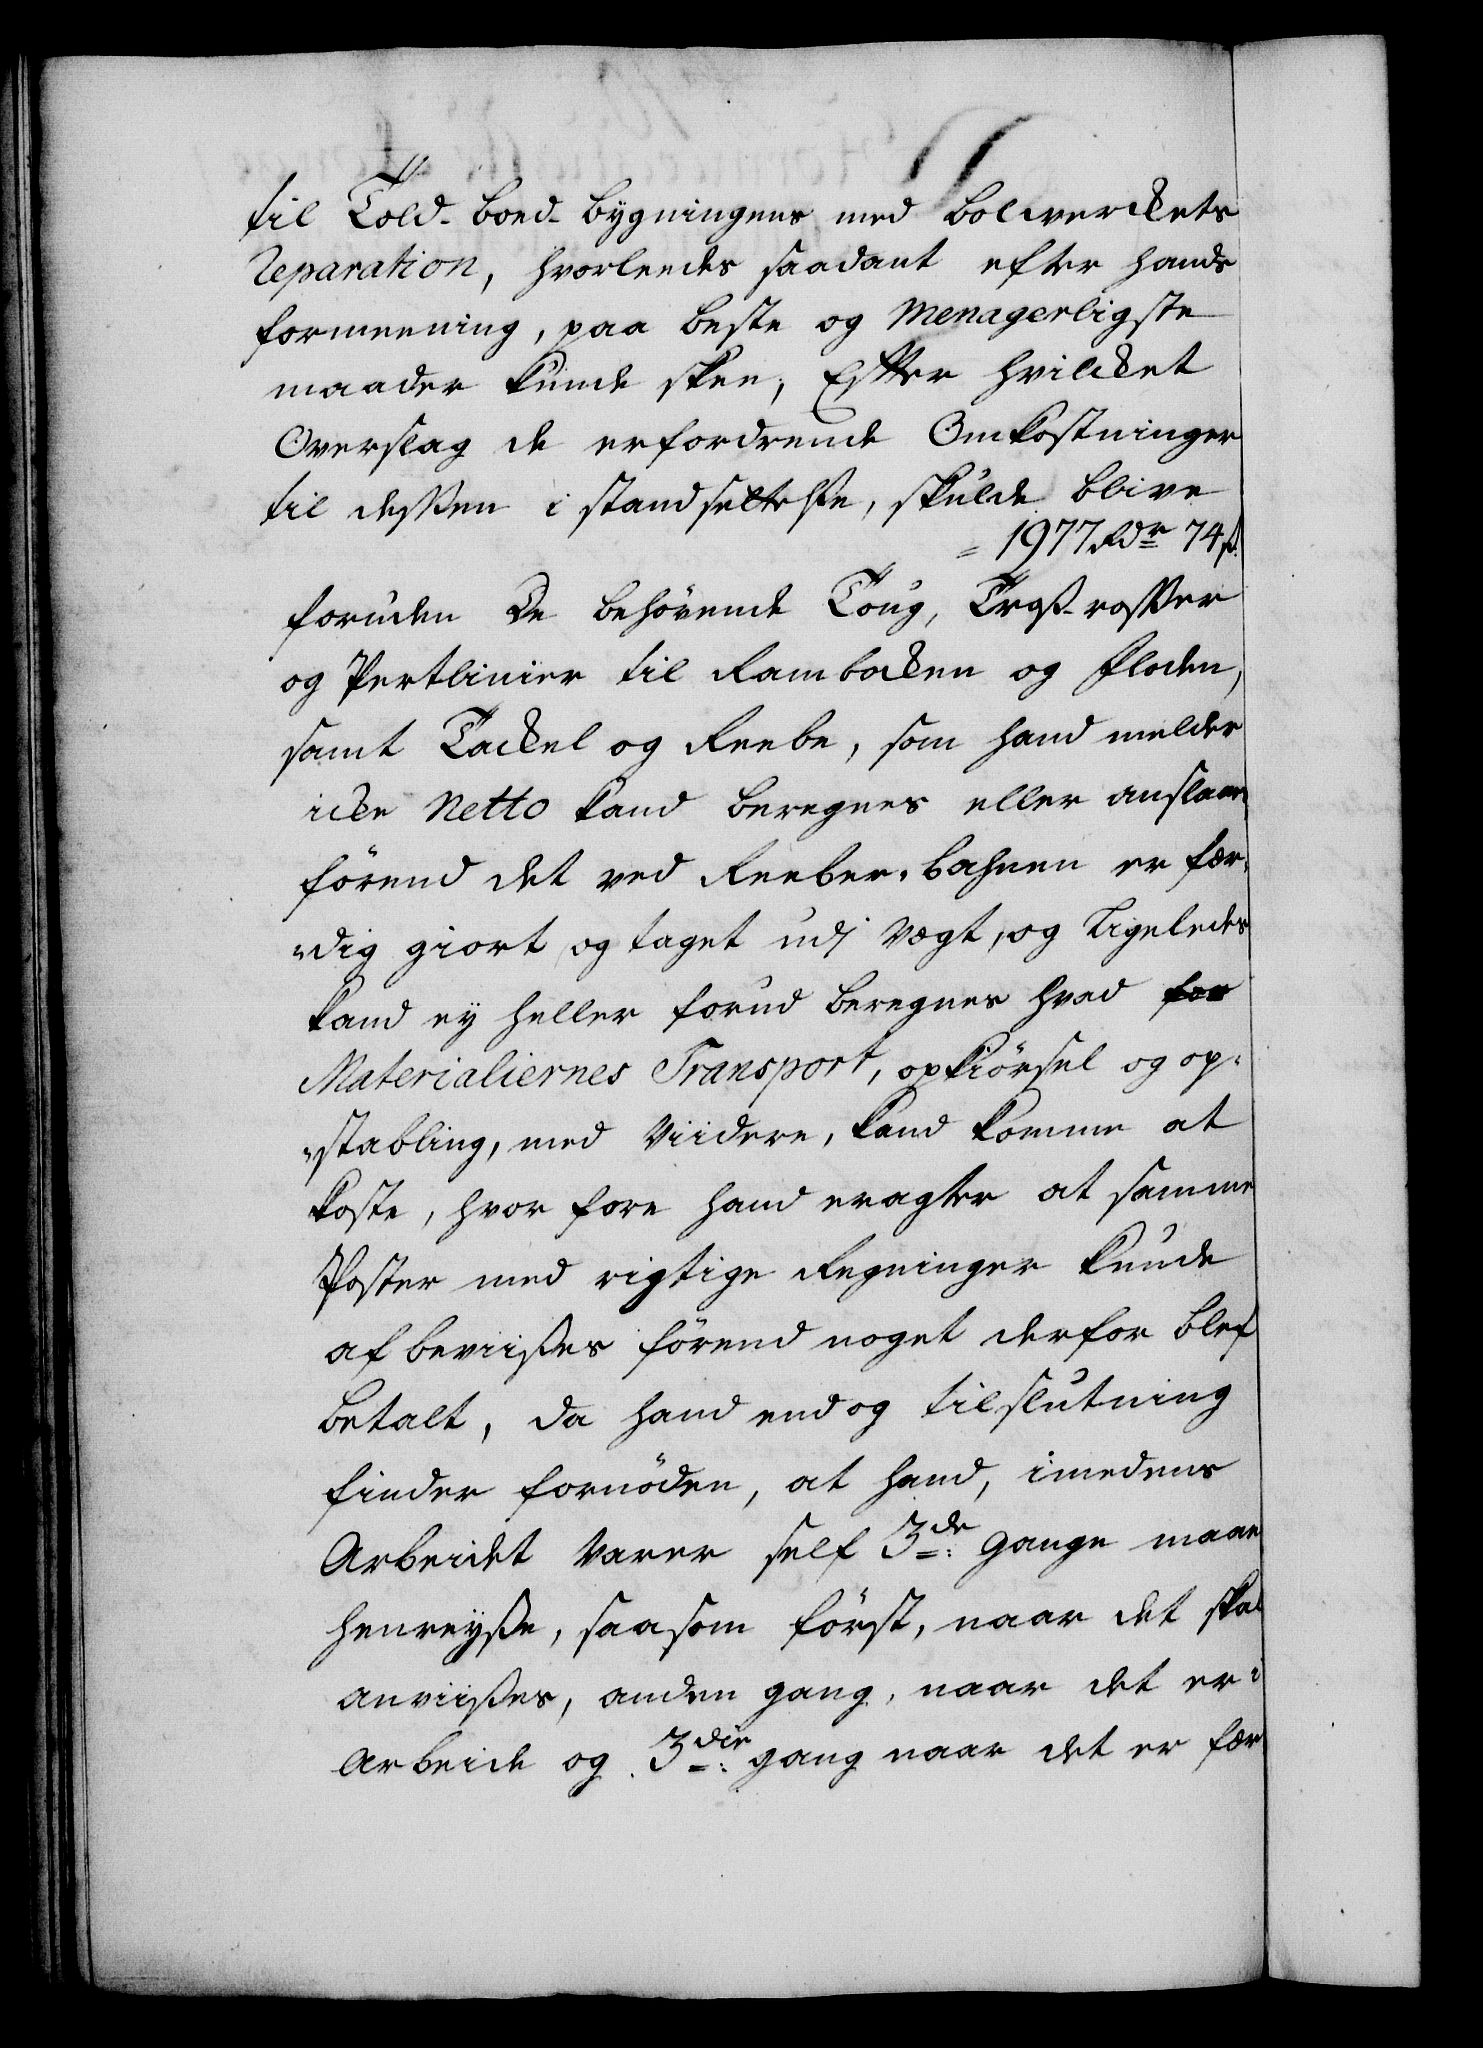 til Told-boed-bygningens med bolwerckets
Reparation, hvorleedes saadant efter hands
formeening, paa beste og Menagerligste
maader kunde skee, Efter hvilcket
Overslag de erfordrende Omkostninger
til dessen i standsettelse, skulde blive
= 1977 Rdr 74 ß.
foruden De behövende Toug,
og Pertlinier til Rambocken og floden,
samt Tackel og Reebe, som hand melder
icke Netto kand beregnes eller anslaaes
förend det ved Reeber-bahnen er fær-
dig giort og taget udj vægt, og Ligeledes
kand ey heller forud beregnes hvad for
Materialiernes Transport, opkiörsel og op-
stabling, med Viidere, kand komme at
koste, hvor fore hand eragter at samme
Poster med rigtige Regninger kunde
af beviises förend noget derfor blef
betalt, da hand end og til slutning
finder fornöden, at hand, imedens
Arbeidet Varer self 3de gange maae
henreyse, saasom först, naar det skal
anviises, anden gang, naar det er i
Arbeide og 3die gang naar det er fær